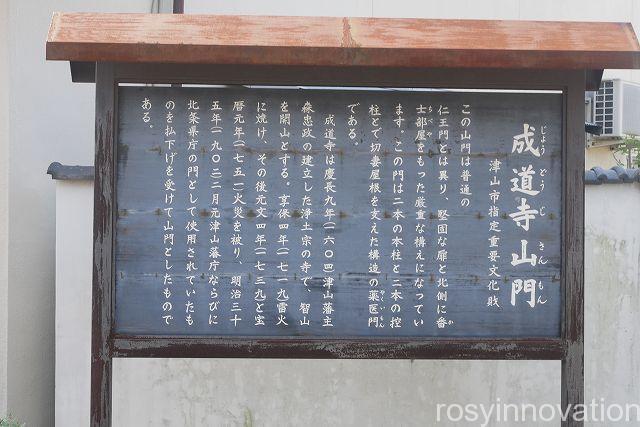 成道寺山門
じょうどうじさんもん
津山市指定重要文化財
この山門は普通の
仁王門とは異り、堅固な扉と北側に番
士部屋をもった厳重な構えになってい
ます。この門は二本の本柱と二本の控
柱とで切妻屋根を支えた構造の薬医門
である。
成道寺は慶長九年(一六〇四)津山藩主
森忠政の建立した浄土宗の寺で、智山
を開山とする。享保四年(一七一九)雷火
に焼け、その後元文四年(一七三九)と宝
暦元年(一七五一)火災を被り、明治三十
五年(一九〇二)二月元津山藩庁ならびに
北条県庁の門として使用されていたも
のを払下げを受けて山門としたもので
ある。
rosyinnovation